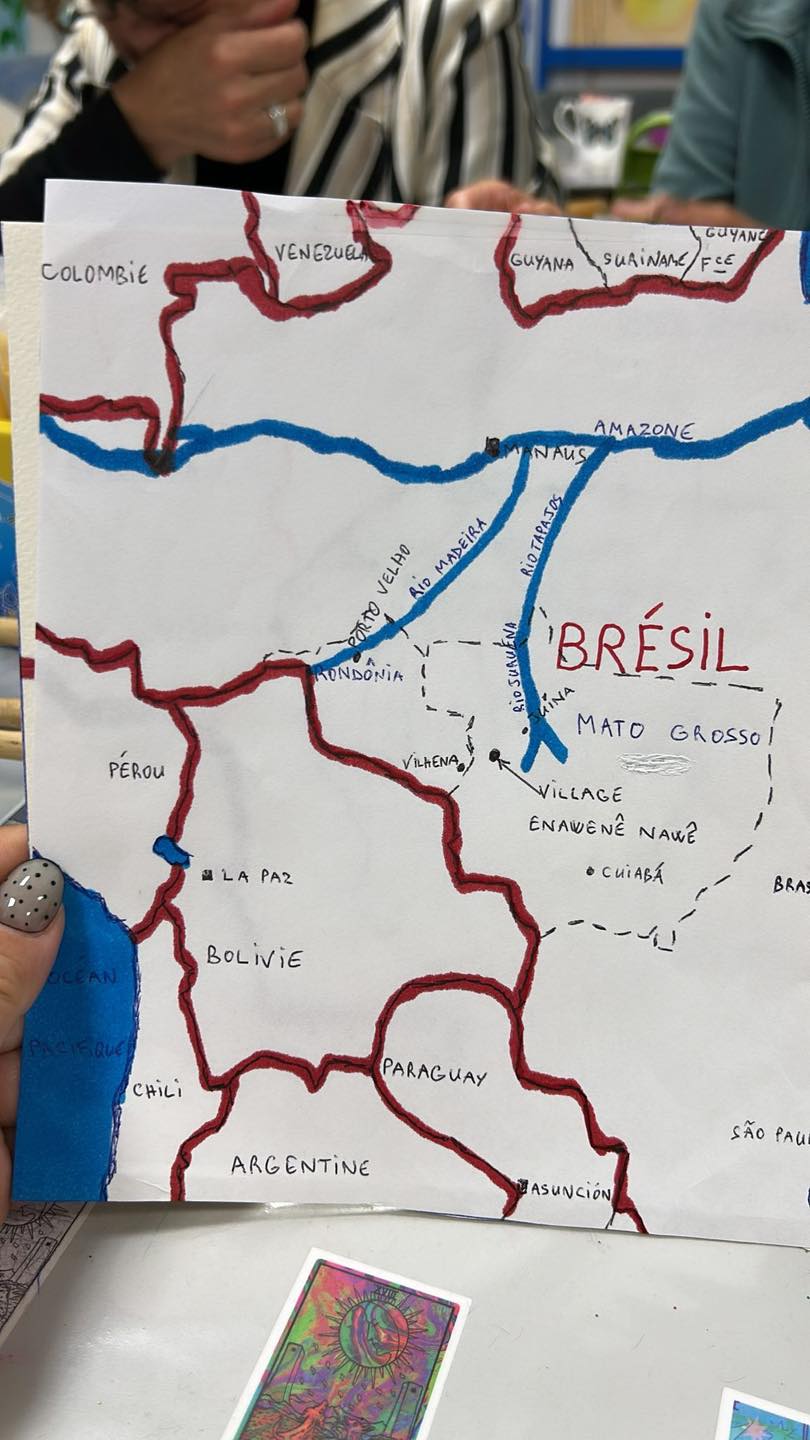 COLOMBIE
VENEZUELA
GUYANA
SURINAME
GUYANE
FCE
AMAZONE
MANAUS
RIO MADEIRA
RIO TAPAJOS
PORTO VELHO
RONDÔNIA
RIO JURUENA
JUÍNA
BRÉSIL
MATO GROSSO
PÉROU
VILHENA
VILLAGE
ENAWENÊ NAWÊ
LA PAZ
CUIABÁ
BRAS
BOLIVIE
OCÉAN
PACIFIQUE
CHILI
PARAGUAY
SÃO PAU
ARGENTINE
ASUNCIÓN
XVIII